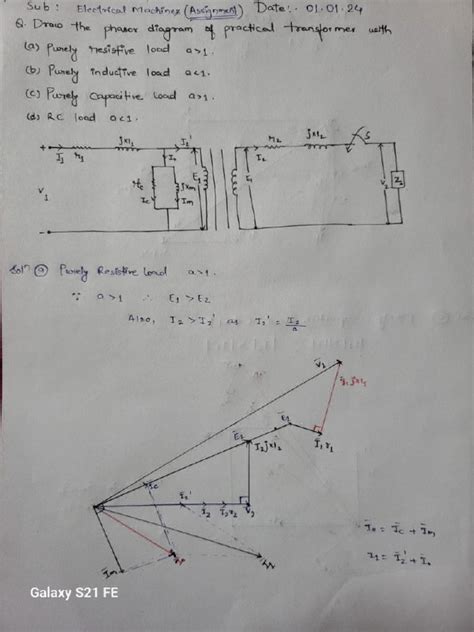 Sub : Electrical Machines (Assignment) Date:- 01.01.24
Q. Draw the phasor diagram of practical transformer with
(a) Purely resistive load a>1.
(b) Purely inductive load a<1.
(c) Purely Capacitive load a>1.
(d) RC load a<1.
I1 r1 jx1 I2'
I0
rc jxm
Ic Im
V1
E1
E2
I2 r2 jx2 S
V2 Z2
Solⁿ (a) Purely Resistive Load a>1.
∵ a>1 ∴ E1 > E2
Also, I2 > I2' as I2' = I2/a
V̄1
Ī1jx1
Ē1
Ī1r1
Ē2
I2jx2
Īc
Ī2' Ī2 Ī2r2 V̄2
Īm
Ī0 = Īc + Īm
I1 = Ī2' + Ī0
Galaxy S21 FE